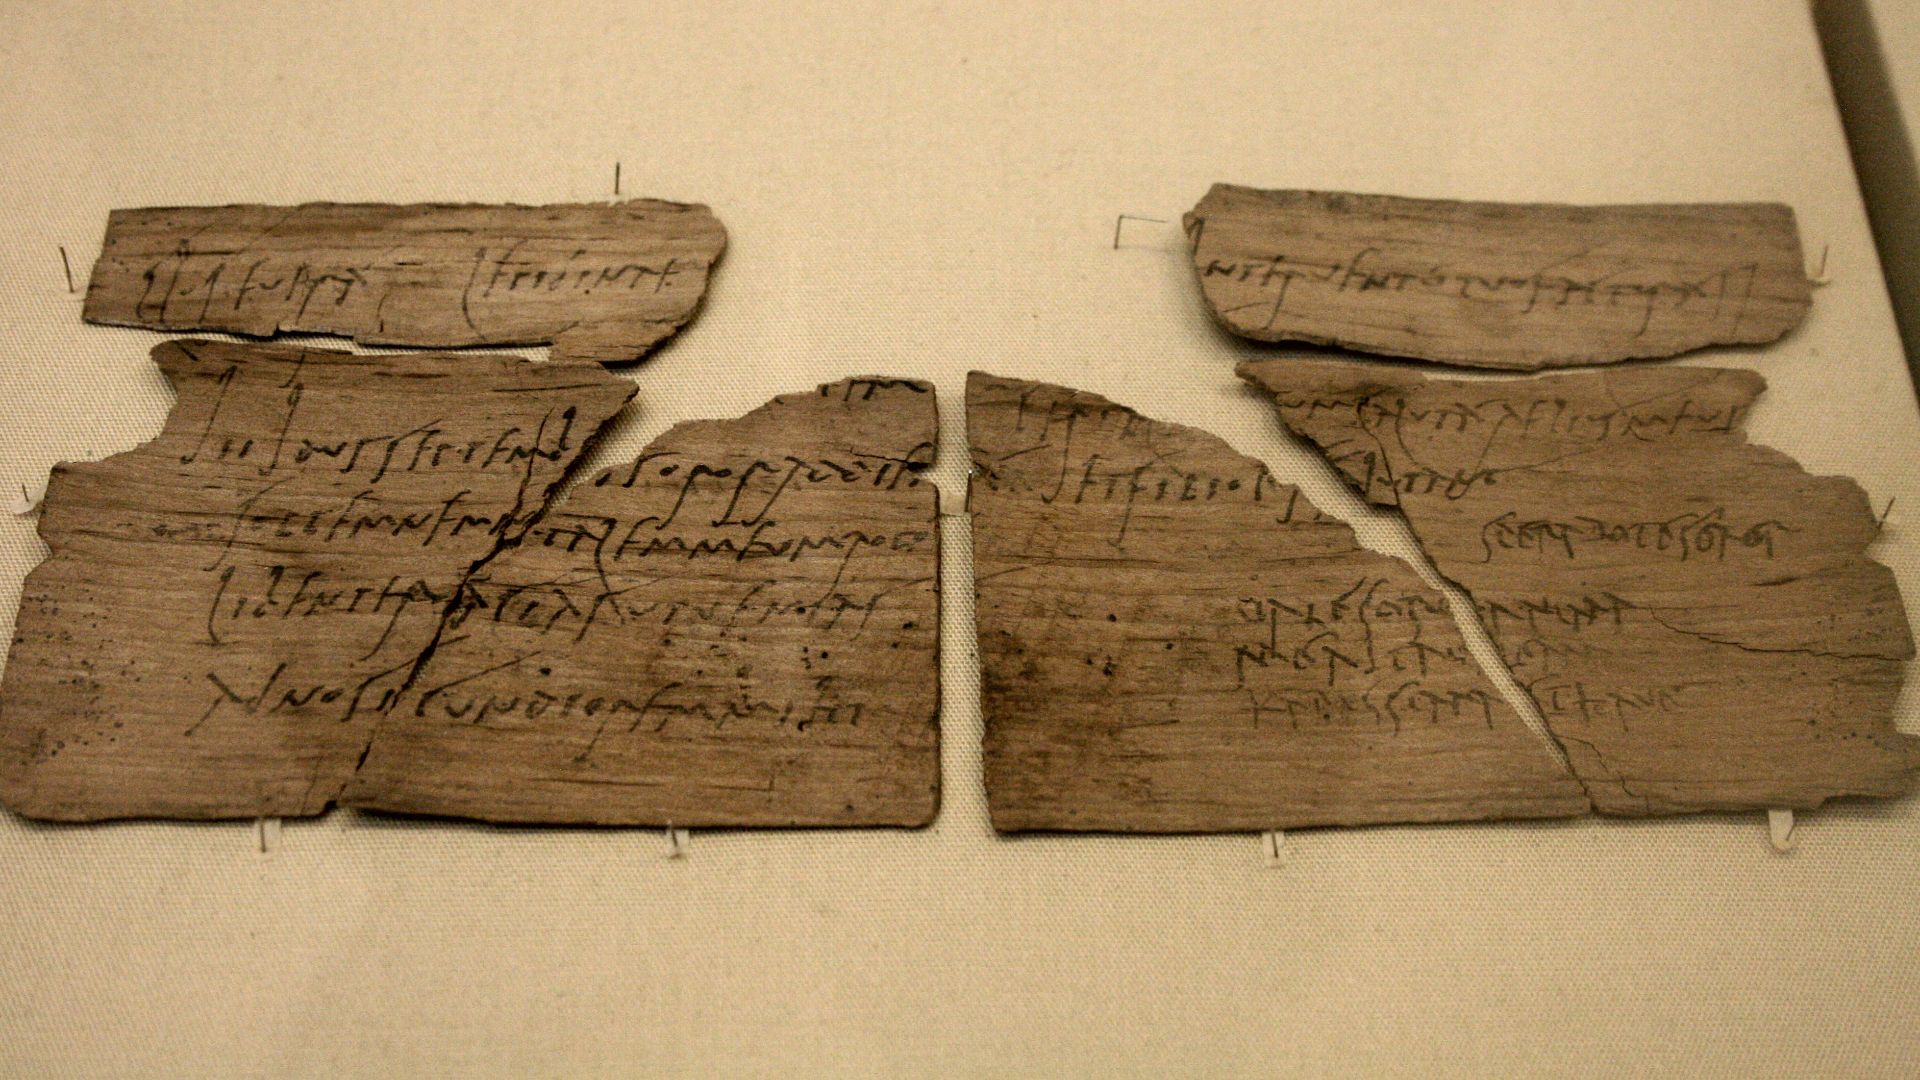 Cl Seuera Lepidinae
tem
iii Idus Septembres soror ad diem
sollemnem natalem meum rogo
libenter facias ut uenias
ad nos iucundiorem mihi
interuentu tuo factura si
uum saluta Aelius meus
et filiolus salutant
sperabo te soror
uale soror anima
mea ita ualeam
karissima et haue